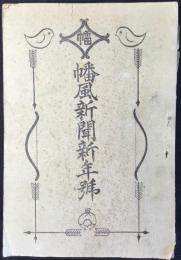 幡
幡風新聞新年號